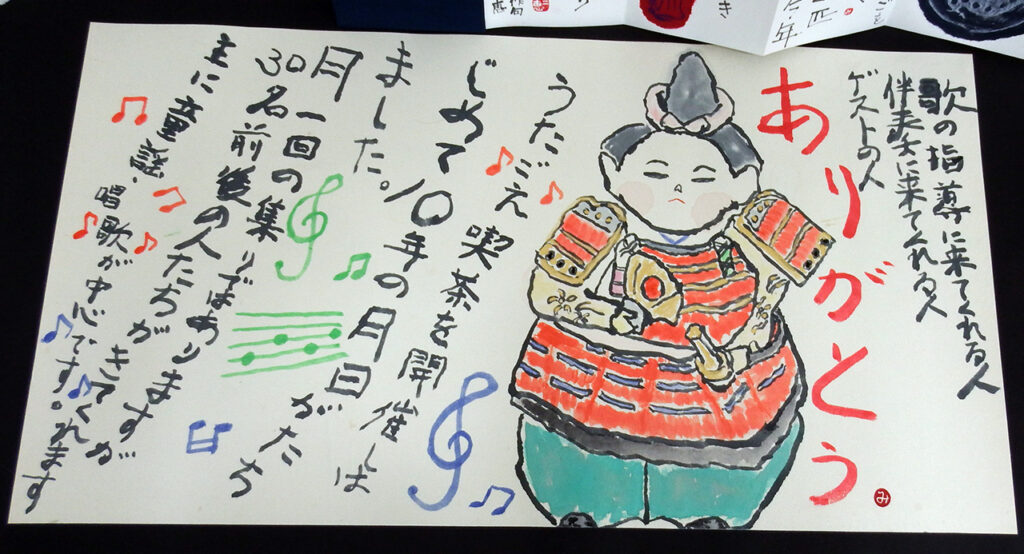 歌の指導に来てくれる人
伴奏に来てくれる人
ゲストの人
ありがとう
み
うたごえ喫茶を開催しは
じめて10年の月日がたち
ました。
月一回の集りではあります
30名前後の人たちがきてくれます
主に童謡・唱歌が中心です。